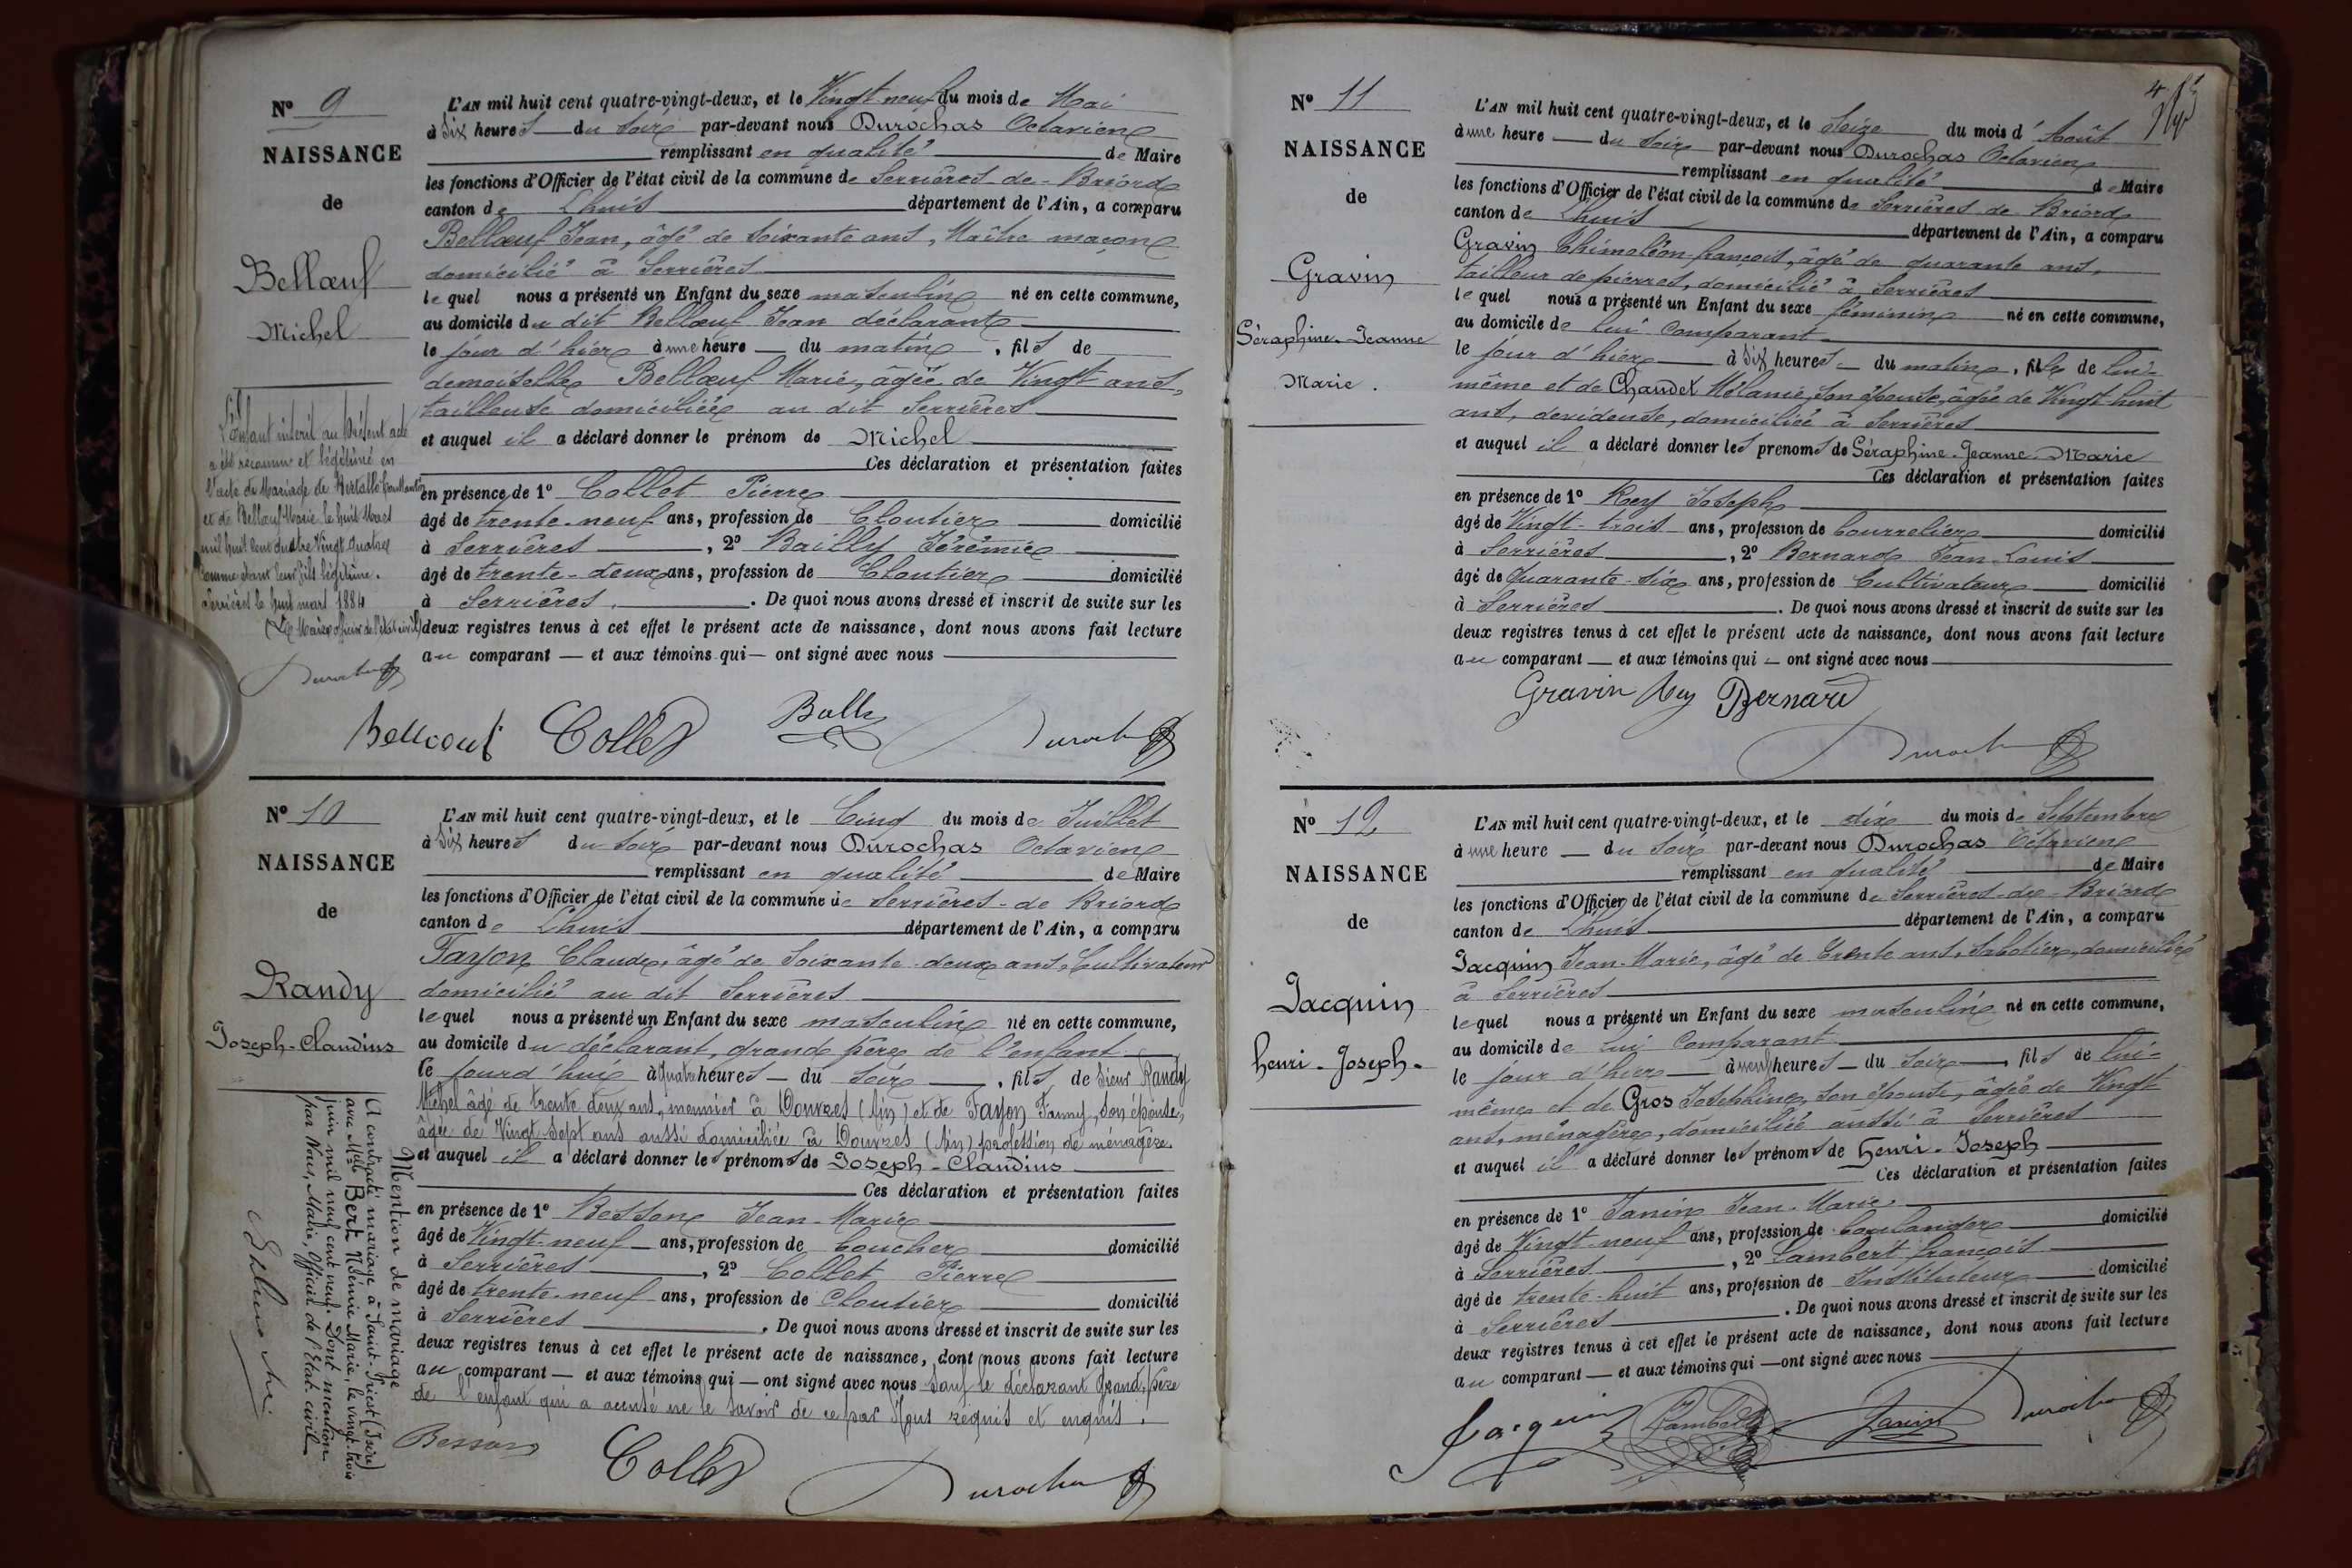 Nº 9
NAISSANCE
de
Bellœuf
Michel
L'Enfant inscrit au présent acte
a été reconnu et légitimé en
l'acte de Mariage de
et de Bellœuf Marie le huit Mars
mil huit cent quatre Vingt quatre
comme étant leur fils légitime.
Serrières le huit mars 1884
Le Maire officier de l'état civil
L'AN mil huit cent quatre-vingt-deux, et le Vingt-neuf du mois de Mai
à Six heures du soir par-devant nous Durochas Octavien
remplissant en qualité de Maire
les fonctions d'Officier de l'état civil de la commune de Serrières-de-Briord
canton de Lhuis département de l'Ain, a comparu
Bellœuf Jean, âgé de soixante ans, Maître maçon
domicilié à Serrières
lequel nous a présenté un Enfant du sexe masculin né en cette commune,
au domicile du dit Bellœuf Jean déclarant
le jour d'hier à une heure du matin, fils de
demoiselle Bellœuf Marie, âgée de Vingt ans,
tailleuse domiciliée au dit Serrières
et auquel il a déclaré donner le prénom de Michel
Ces déclaration et présentation faites
en présence de 1º Collet Pierre
âgé de trente-neuf ans, profession de Cloutier domicilié
à Serrières, 2º Bailly Jérémie
âgé de trente-deux ans, profession de Cloutier domicilié
à Serrières. De quoi nous avons dressé et inscrit de suite sur les
deux registres tenus à cet effet le présent acte de naissance, dont nous avons fait lecture
au comparant — et aux témoins qui — ont signé avec nous
Bellœuf Collet Bally Durochas
Nº 10
NAISSANCE
de
Randy
Joseph-Claudius
Mention de mariage
A contracté mariage à Saint-Priest (Isère)
avec Mlle Bert Noémie Marie, le vingt-trois
juin mil neuf cent neuf. Dont mention
par Nous, Maire, Officier de l'Etat-civil
L'AN mil huit cent quatre-vingt-deux, et le Cinq du mois de Juillet
à Six heures du soir par-devant nous Durochas Octavien
remplissant en qualité de Maire
les fonctions d'Officier de l'état civil de la commune de Serrières-de Briord
canton de Lhuis département de l'Ain, a comparu
Fayon Claude, âgé de Soixante-deux ans, Cultivateur
domicilié au dit Serrières
lequel nous a présenté un Enfant du sexe masculin né en cette commune,
au domicile du déclarant, grand père de l'enfant
le jourd'hui à quatre heures — du soir, fils de Sieur Randy
Michel âgé de trente deux ans, meunier à Douvres (Ain) et de Fayon Fanny, son épouse,
âgée de Vingt-Sept ans aussi domiciliée à Douvres (Ain) profession de ménagère.
et auquel il a déclaré donner les prénoms de Joseph-Claudius
Ces déclaration et présentation faites
en présence de 1º Besson Jean-Marie
âgé de Vingt-neuf ans, profession de boucher domicilié
à Serrières, 2º Collet Pierre
âgé de trente-neuf ans, profession de Cloutier domicilié
à Serrières. De quoi nous avons dressé et inscrit de suite sur les
deux registres tenus à cet effet le présent acte de naissance, dont nous avons fait lecture
au comparant — et aux témoins qui — ont signé avec nous Sauf le déclarant Grand, père
de l'enfant qui a accusé ne le savoir de ce par Nous requis et enquis.
Besson Collet Durochas
Nº 11
NAISSANCE
de
Gravin
Séraphine-Jeanne
Marie.
L'AN mil huit cent quatre-vingt-deux, et le Seize du mois d'Août
à une heure — du soir par-devant nous Durochas Octavien
remplissant en qualité de Maire
les fonctions d'Officier de l'état civil de la commune de Serrières de Briord
canton de Lhuis département de l'Ain, a comparu
Gravin Thimoléon-françois, âgé de quarante ans,
tailleur de pierres, domicilié à Serrières
lequel nous a présenté un Enfant du sexe féminin né en cette commune,
au domicile de lui Comparant
le jour d'hier à Six heures — du matin, fille de lui-
même et de Chaudet Mélanie, son épouse, âgée de Vingt-huit
ans, devideuse, domiciliée à Serrières
et auquel il a déclaré donner les prenoms de Séraphine-Jeanne-Marie
Ces déclaration et présentation faites
en présence de 1º Rey Joseph
âgé de Vingt-trois ans, profession de bourrelier domicilié
à Serrières, 2º Bernard Jean-Louis
âgé de Quarante-six ans, profession de Cultivateur domicilié
à Serrières. De quoi nous avons dressé et inscrit de suite sur les
deux registres tenus à cet effet le présent acte de naissance, dont nous avons fait lecture
au comparant — et aux témoins qui — ont signé avec nous
Gravin Rey Bernard
Durochas
Nº 12
NAISSANCE
de
Jacquin
henri-Joseph.
L'AN mil huit cent quatre-vingt-deux, et le dix du mois de Septembre
à une heure — du soir par-devant nous Durochas Octavien
remplissant en qualité de Maire
les fonctions d'Officier de l'état civil de la commune de Serrières-de-Briord
canton de Lhuis département de l'Ain, a comparu
Jacquin Jean-Marie, âgé de trente ans, Sabotier, domicilié
à Serrières
lequel nous a présenté un Enfant du sexe masculin né en cette commune,
au domicile de lui Comparant
le jour d'hier à neuf heures — du soir, fils de lui-
même et de Gros Joséphine, son épouse, âgée de Vingt
ans, ménagère, domiciliée aussi à Serrières
et auquel il a déclaré donner les prénoms de henri-Joseph
Ces déclaration et présentation faites
en présence de 1º Janin Jean-Marie
âgé de Vingt-neuf ans, profession de boulanger domicilié
à Serrières, 2º Lambert françois
âgé de trente-huit ans, profession de Instituteur domicilié
à Serrières. De quoi nous avons dressé et inscrit de suite sur les
deux registres tenus à cet effet le présent acte de naissance, dont nous avons fait lecture
au comparant — et aux témoins qui — ont signé avec nous
Jacquin Lambert Janin Durochas